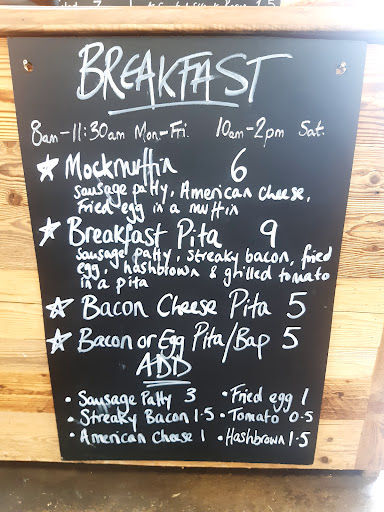 BREAKFAST
8am-11:30am Mon-Fri 10am-2pm Sat.
Mockmuffin 6
sausage patty, American cheese,
fried egg in a muffin
Breakfast Pita 9
sausage patty, streaky bacon, fried
egg, hashbrown & grilled tomato
in a pita
Bacon Cheese Pita 5
Bacon or Egg Pita/Bap 5
ADD
• Sausage Patty 3 • Fried egg 1
• Streaky Bacon 1.5 • Tomato 0.5
• American Cheese 1 • Hashbrown 1.5